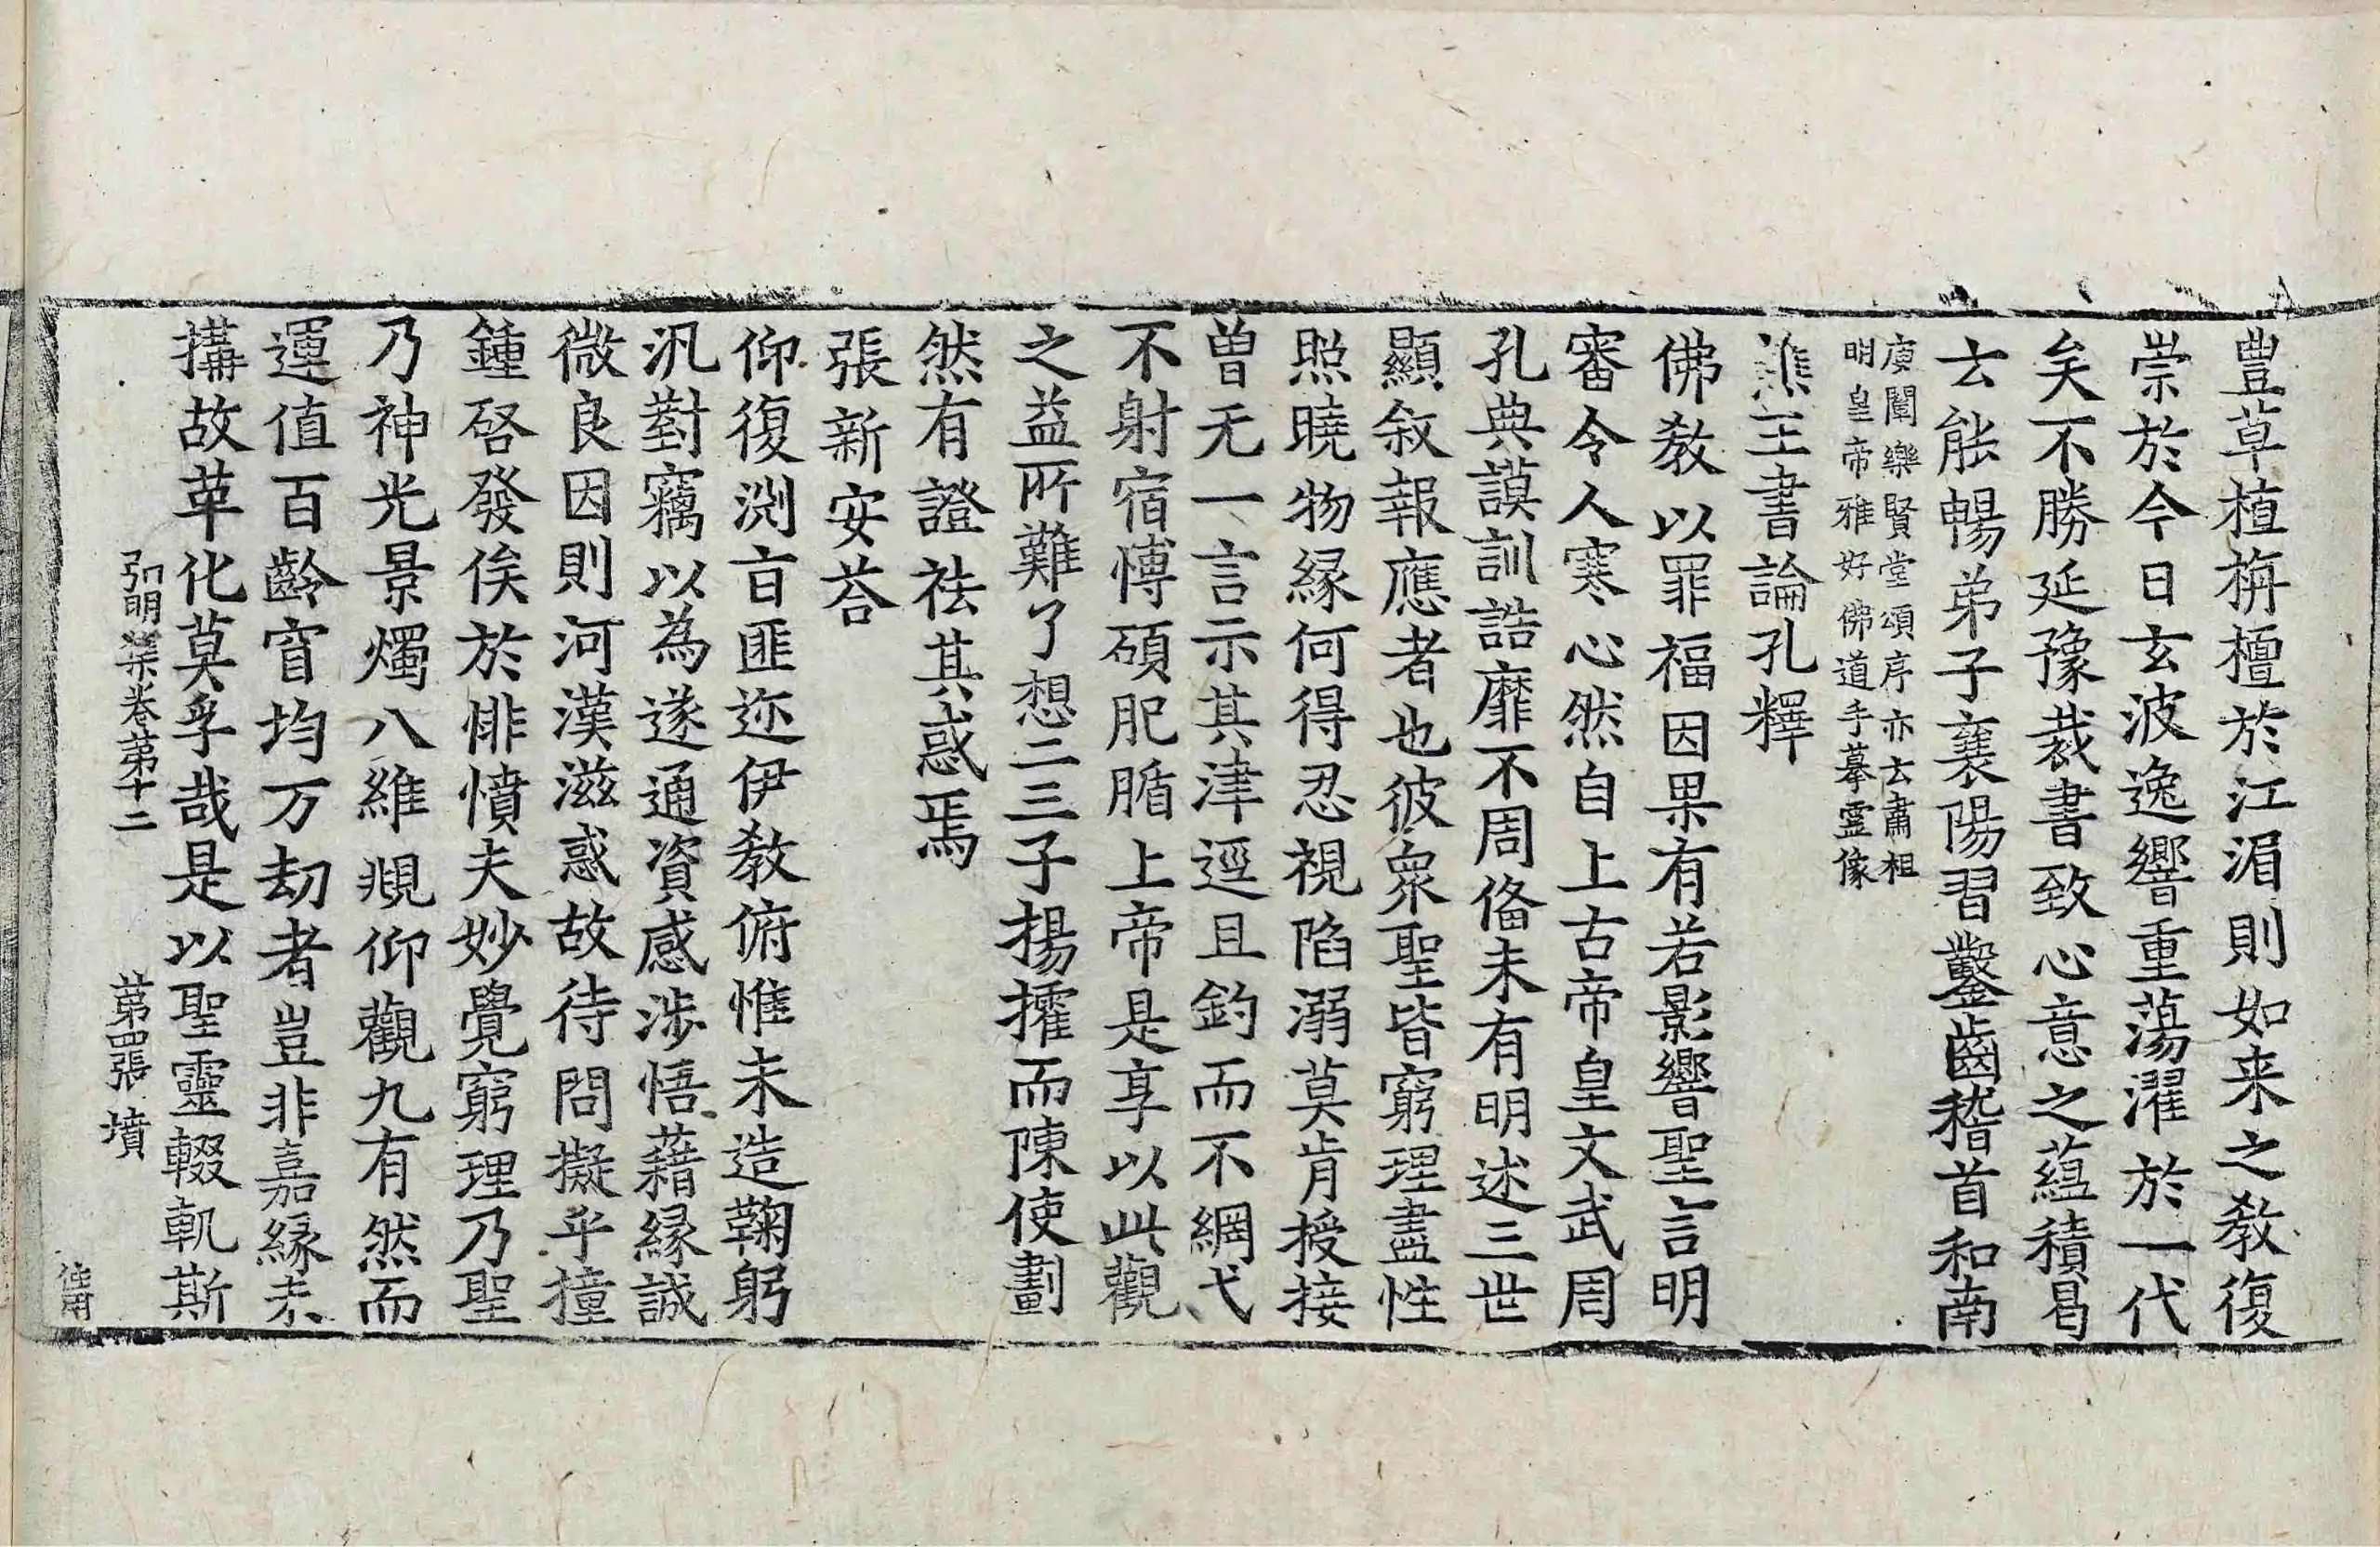 豊草植栴檀於江湄則如来之教復
崇於今日玄波逸響重蕩濯於一代
矣不勝延豫裁書致心意之蘊積曷
云能暢弟子襄陽習鑿齒稽首和南
庾闡樂賢堂頌序亦云肅祖
明皇帝雅好佛道手摹靈像
譙王書論孔釋
佛教以罪福因果有若影響聖言明
審令人寒心然自上古帝皇文武周
孔典謨訓誥靡不周俻未有明述三世
顯敘報應者也彼衆聖皆窮理盡性
照曉物緣何得忍視陷溺莫肯授接
曾无一言示其津逕且釣而不網弋
不射宿愽碩肥腯上帝是享以此觀
之益所難了想二三子揚搉而陳使劃
然有證祛其惑焉
張新安荅
仰復渕旨匪迩伊教俯惟未造鞠躬
汎對竊以為遂通資感涉悟藉緣誠
微良因則河漢滋惑故待問擬乎撞
鍾啓發俟於悱憤夫妙覺窮理乃聖
乃神光景燭八維䚂仰觀九有然而
運值百齡窅均万劫者豈非嘉緣未
搆故革化莫孚哉是以聖靈輟軌斯
弘明集卷第十二 第四張 墳